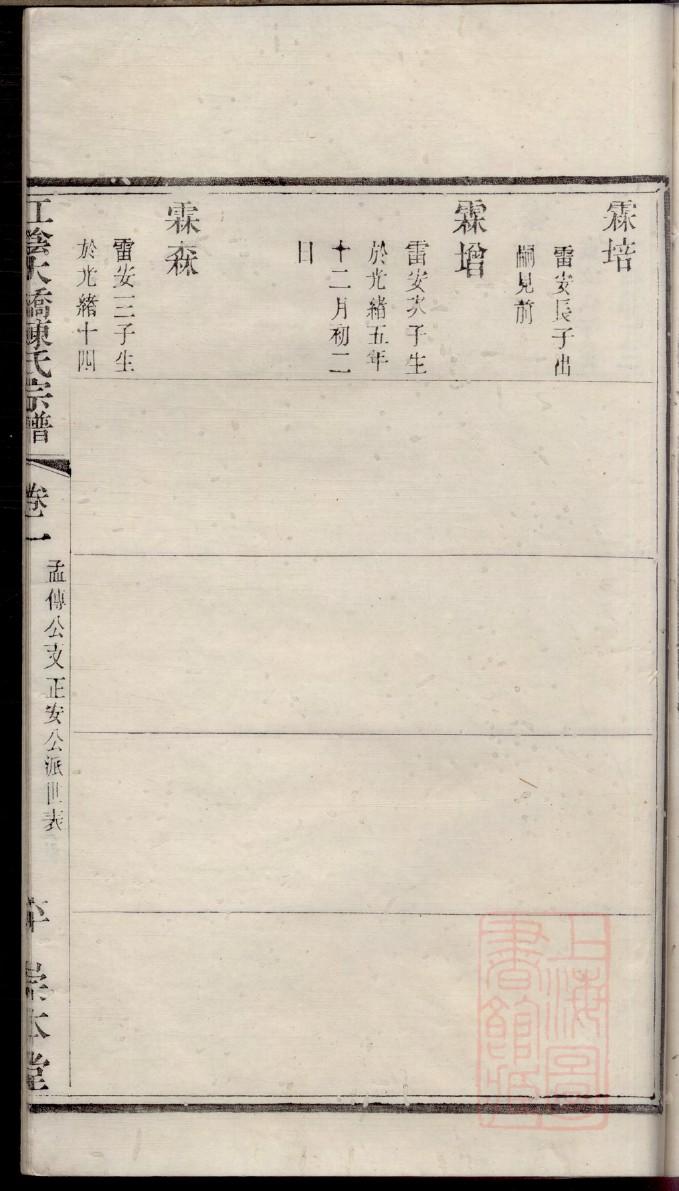 霖培
雷安長子出
嗣見前
霖增
雷安次子生
於光緒五年
十二月初二
日
霖森
雷安三子生
於光緒十四
江陰大橋陳氏宗譜
卷一
孟傳公支正安公派世表
崇本堂
上海圖書館藏